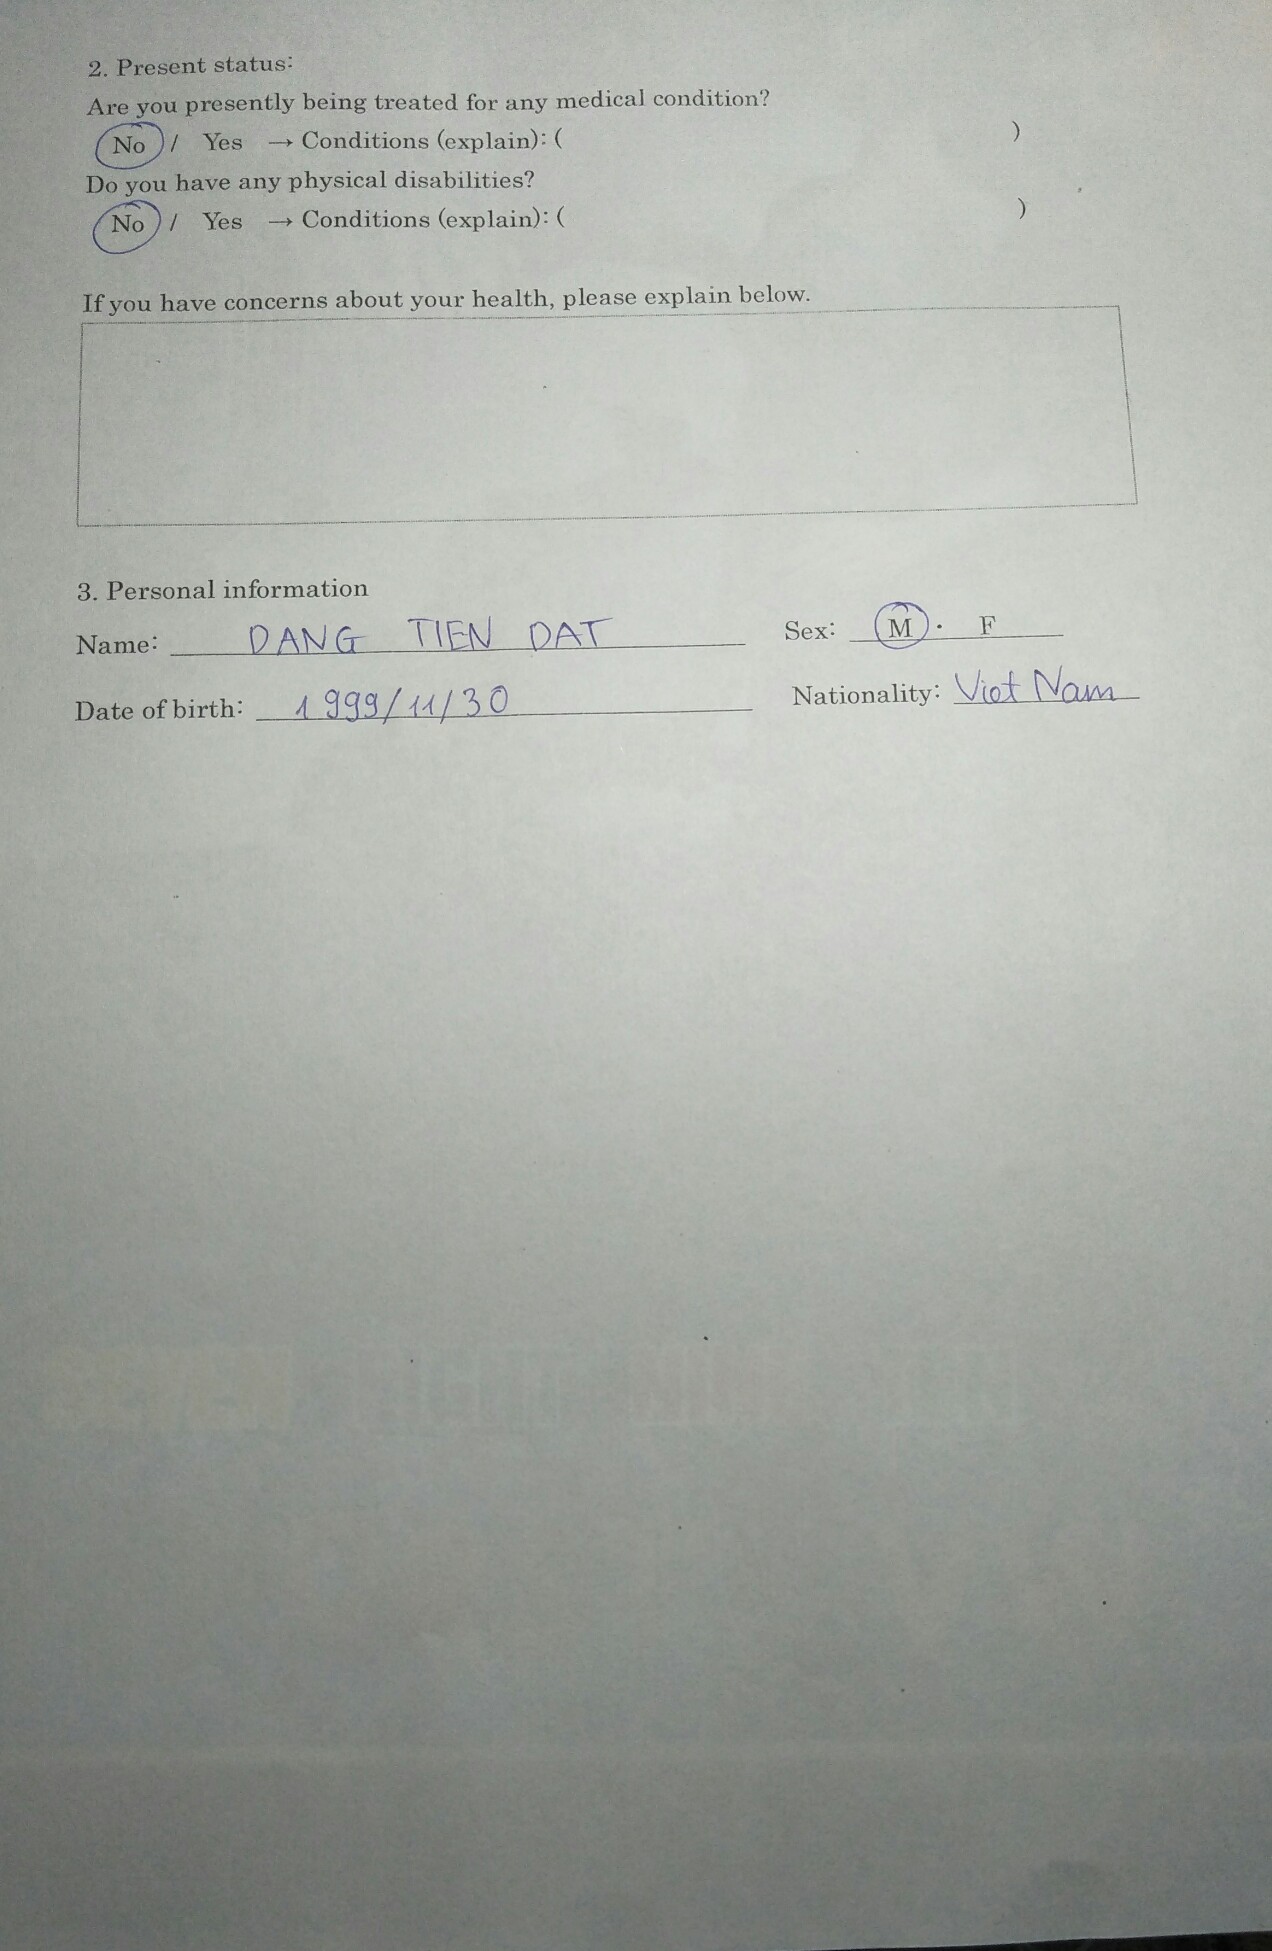 2. Present status:
Are you presently being treated for any medical condition?
No / Yes → Conditions (explain): ( )
Do you have any physical disabilities?
No / Yes → Conditions (explain): ( )
If you have concerns about your health, please explain below.
3. Personal information
Name: DANG TIEN DAT Sex: M · F
Date of birth: 1999/11/30 Nationality: Viet Nam